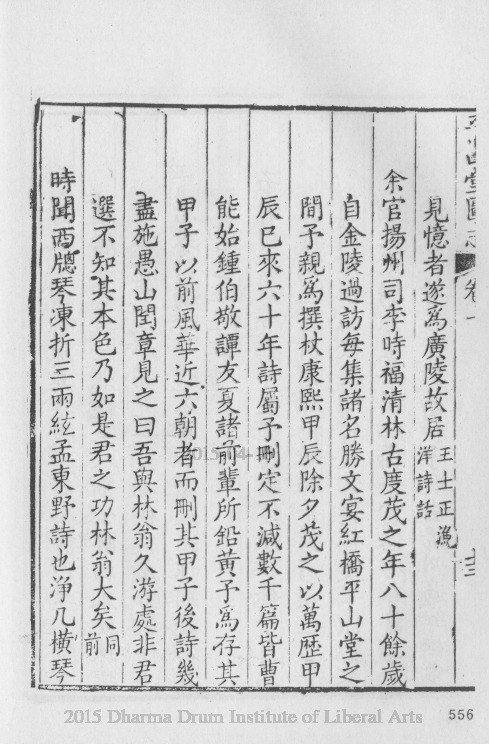 平山堂圖志 卷十 十二
見憶者遂爲廣陵故居王士正漁洋詩話
余官揚州司李時福清林古度茂之年八十餘歲
自金陵過訪每集諸名勝文宴紅橋平山堂之
間予親爲撰杖康熙甲辰除夕茂之以萬歷甲
辰已來六十年詩屬予刪定不減數千篇皆曹
能始鍾伯敬譚友夏諸前輩所鉛黃予爲存其
甲子以前風華近六朝者而刪其甲子後詩幾
盡施愚山閏章見之曰吾與林翁久游處非君
選不知其本色乃如是君之功林翁大矣同前
時聞西牕琴凍折三兩絃孟東野詩也淨几橫琴
2015 Dharma Drum Institute of Liberal Arts
556